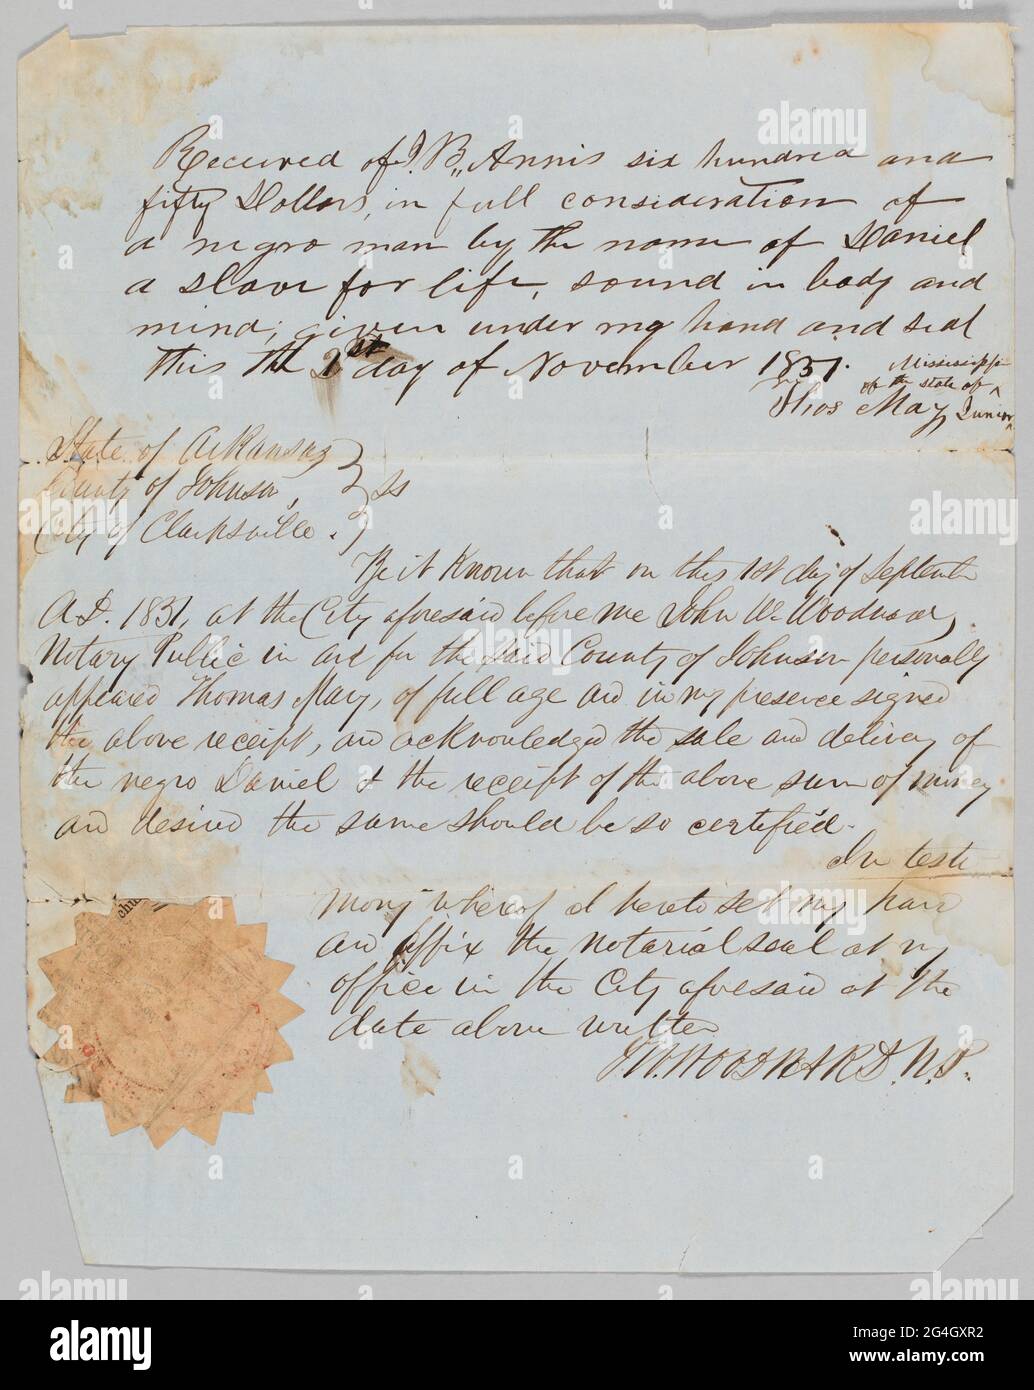 Received of J. B. Annis six hundred and
fifty Dollars, in full consideration of
a negro man by the name of Daniel
a slave for life, sound in body and
mind; given under my hand and seal
this th 1st day of November 1831.
Mississippi
of the state of
Thos May Junior
State of Arkansas
County of Johnson,
City of Clarksville.
ss
Be it Known that on this 1st day of Septemb
A.D. 1831, at the City aforesaid before me John W. Woodward,
Notary Public in and for the said County of Johnson personally
appeared Thomas May, of full age and in my presence signed
the above receipt, and acknowledged the sale and delivery of
the negro Daniel & the receipt of the above sum of money
and desired the same should be so certified.
In testi-
mony whereof I hereto set my hand
and affix the notarial seal at my
office in the City aforesaid at the
date above written
J. W. WOODWARD. N. P.
alamy
Image ID: 2G4GXR2
www.alamy.com